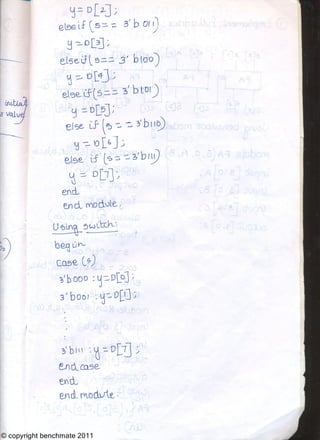 y=D[2];
elseif (s== 3'b011)
y=D[3];
elseif(s== 3'b100)
y=D[4];
else if(s== 3'b101)
y=D[5];
else if (s==3'b110)
y=D[6];
else if (s==3'b111)
y= D[7];
end
end module;
Using switch:
begin
case (s)
3'b000 :y=D[0];
3'b001 :y=D[1];
3'b111 :y=D[7];
end case
end
end module
© copyright benchmate 2011